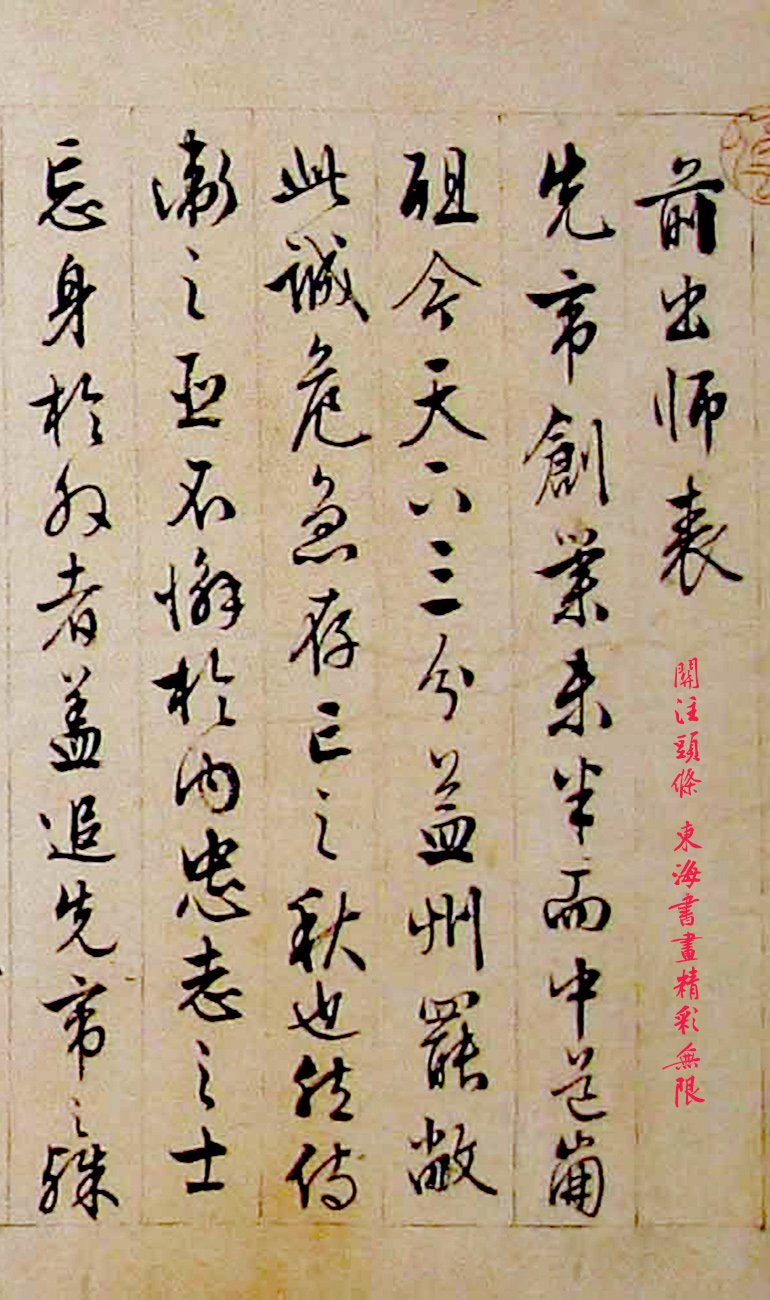 前出師表
關注頭條 東海書畫精彩無限
先帝創業未半而中道崩
殂今天下三分益州罷敝
此誠危急存亡之秋也然侍
衛之臣不懈於內忠志之士
忘身於外者蓋追先帝之殊